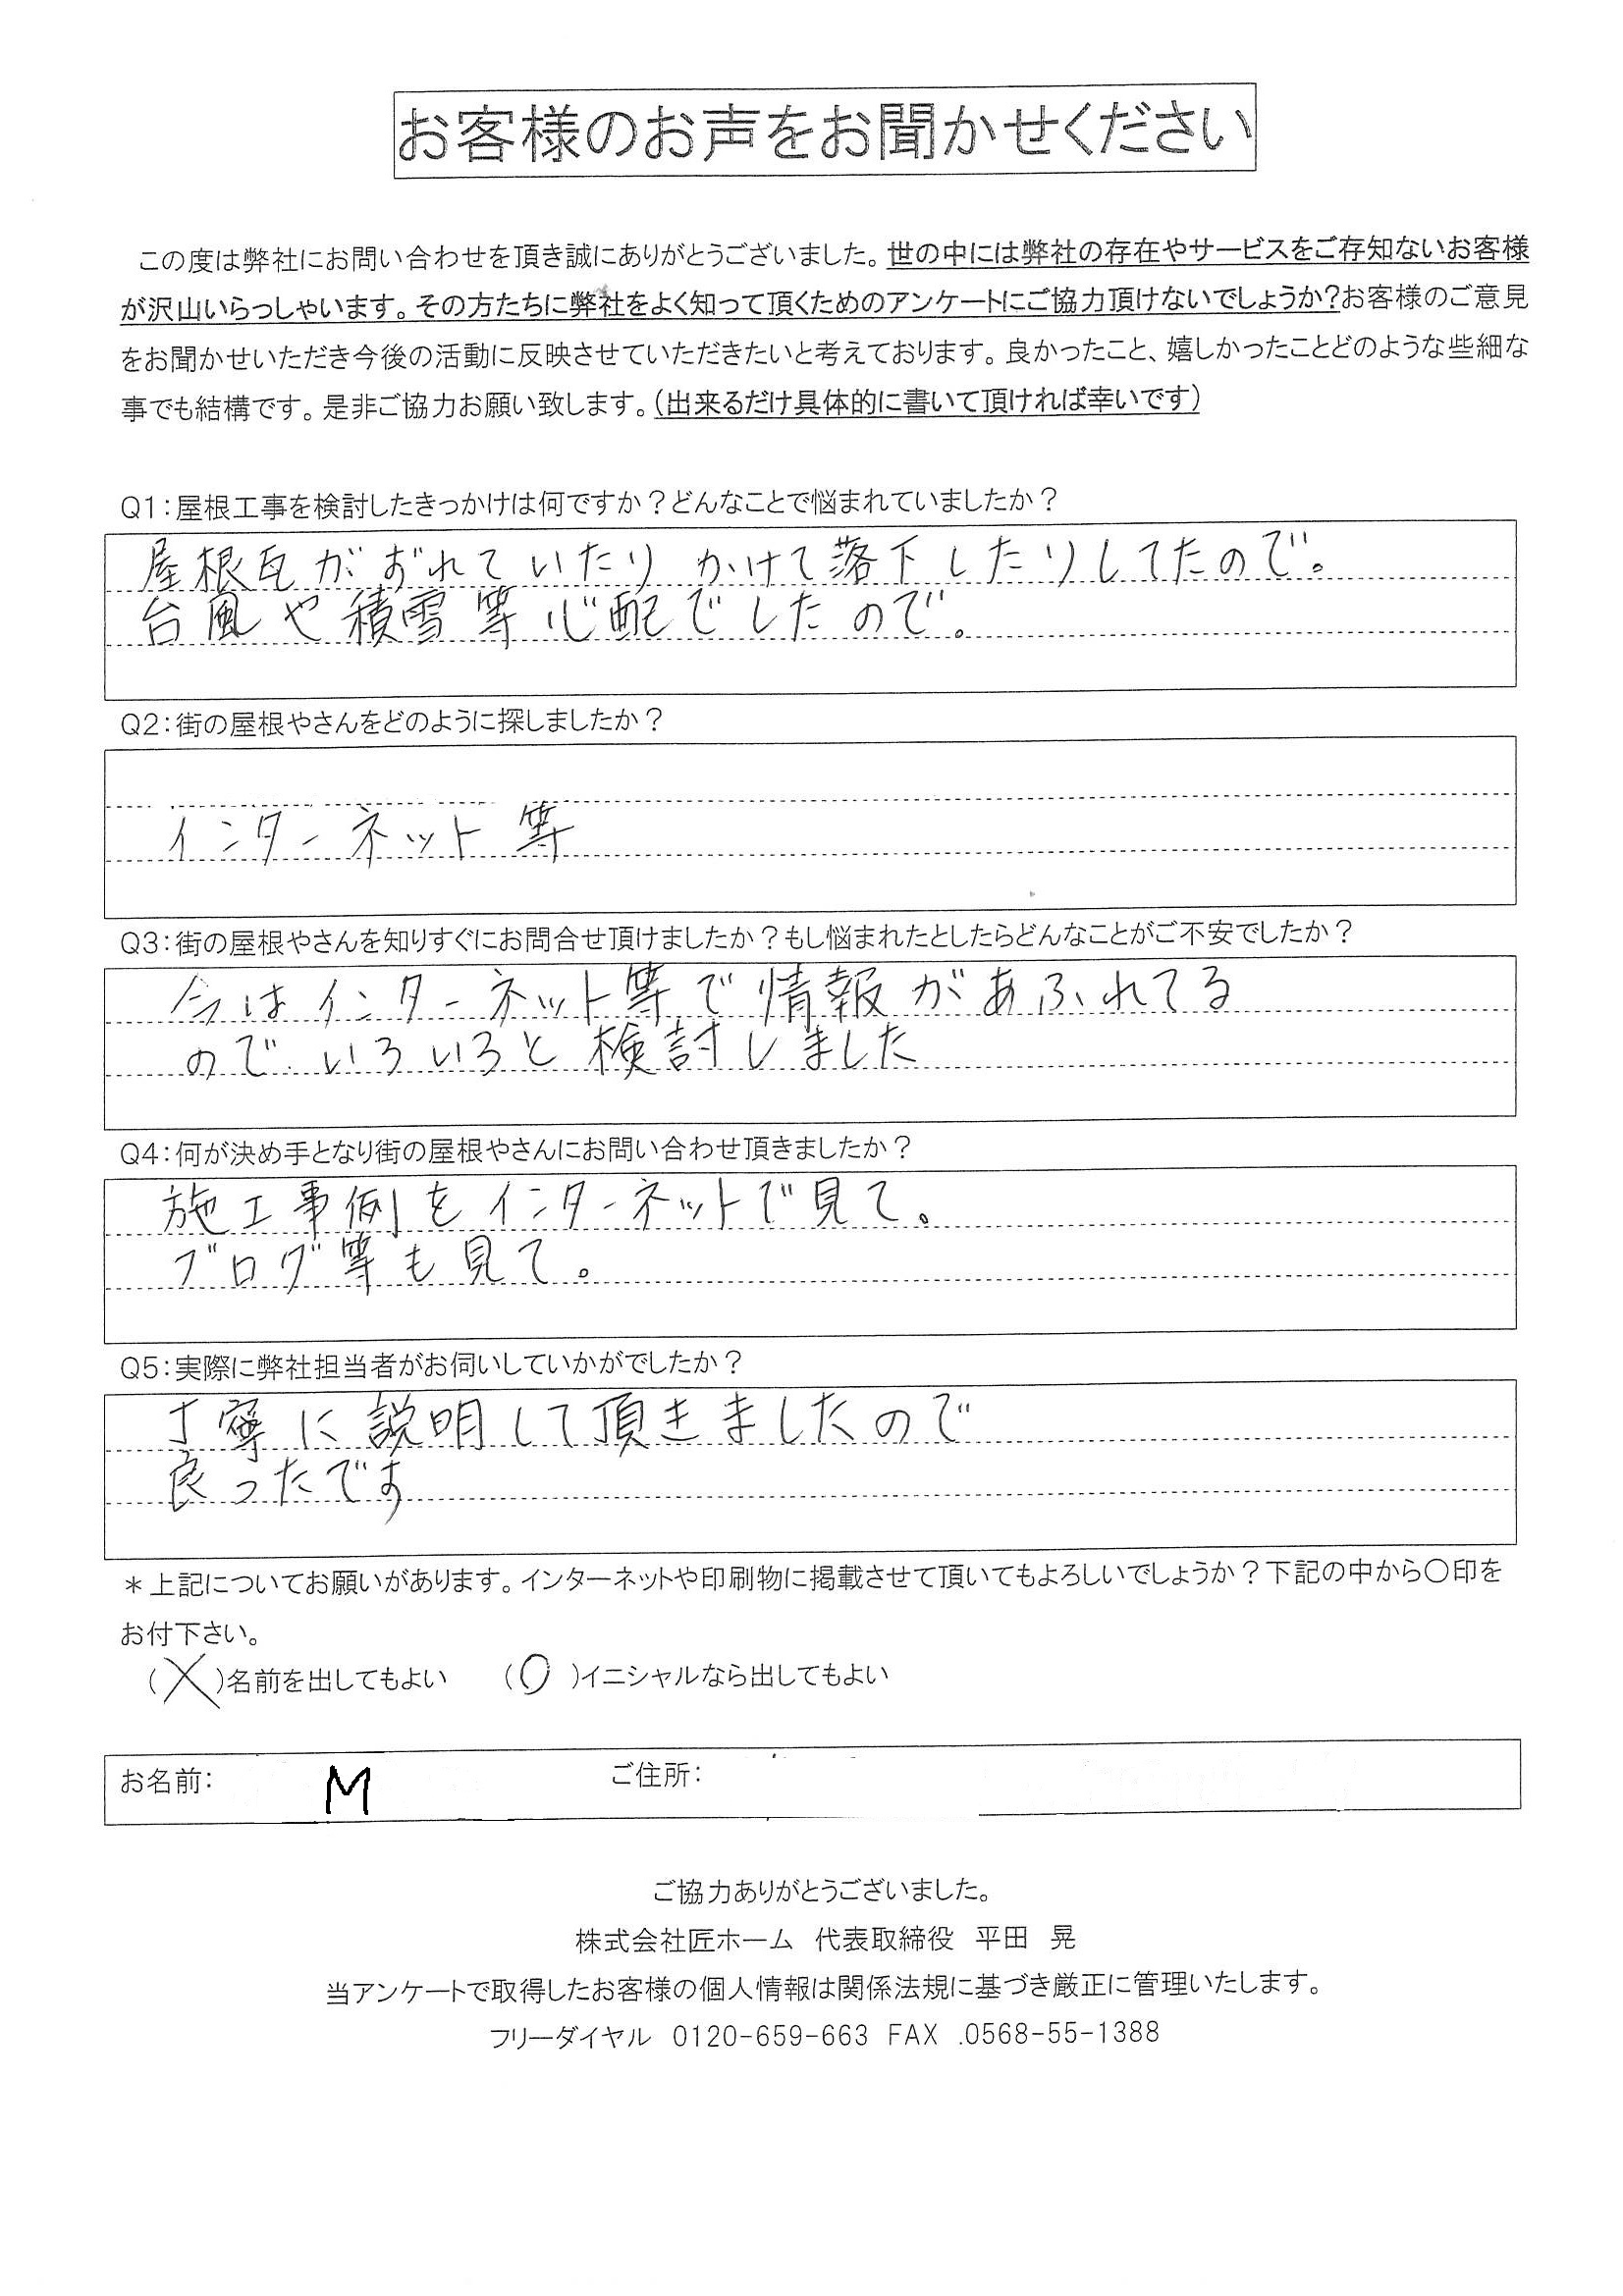 お客様のお声をお聞かせください
この度は弊社にお問い合わせを頂き誠にありがとうございました。世の中には弊社の存在やサービスをご存知ないお客様
が沢山いらっしゃいます。その方たちに弊社をよく知って頂くためのアンケートにご協力頂けないでしょうか?お客様のご意見
をお聞かせいただき今後の活動に反映させていただきたいと考えております。良かったこと、嬉しかったことどのような些細な
事でも結構です。是非ご協力お願い致します。(出来るだけ具体的に書いて頂ければ幸いです)
Q1:屋根工事を検討したきっかけは何ですか?どんなことで悩まれていましたか?
屋根瓦がおれていたりかけて落下したりしてたので。
台風や積雪等心配でしたので。
Q2:街の屋根やさんをどのように探しましたか?
インターネット等
Q3:街の屋根やさんを知りすぐにお問合せ頂けましたか?もし悩まれたとしたらどんなことがご不安でしたか?
今はインターネット等で情報があふれてる
ので いろいろと検討しました
Q4:何が決め手となり街の屋根やさんにお問い合わせ頂きましたか?
施工事例をインターネットで見て。
ブログ等も見て。
Q5:実際に弊社担当者がお伺いしていかがでしたか?
丁寧に説明して頂きましたので
良ったです
*上記についてお願いがあります。インターネットや印刷物に掲載させて頂いてもよろしいでしょうか?下記の中から〇印を
お付下さい。
(X)名前を出してもよい (O)イニシャルなら出してもよい
お名前: M ご住所:
ご協力ありがとうございました。
株式会社匠ホーム 代表取締役 平田 晃
当アンケートで取得したお客様の個人情報は関係法規に基づき厳正に管理いたします。
フリーダイヤル 0120-659-663 FAX .0568-55-1388